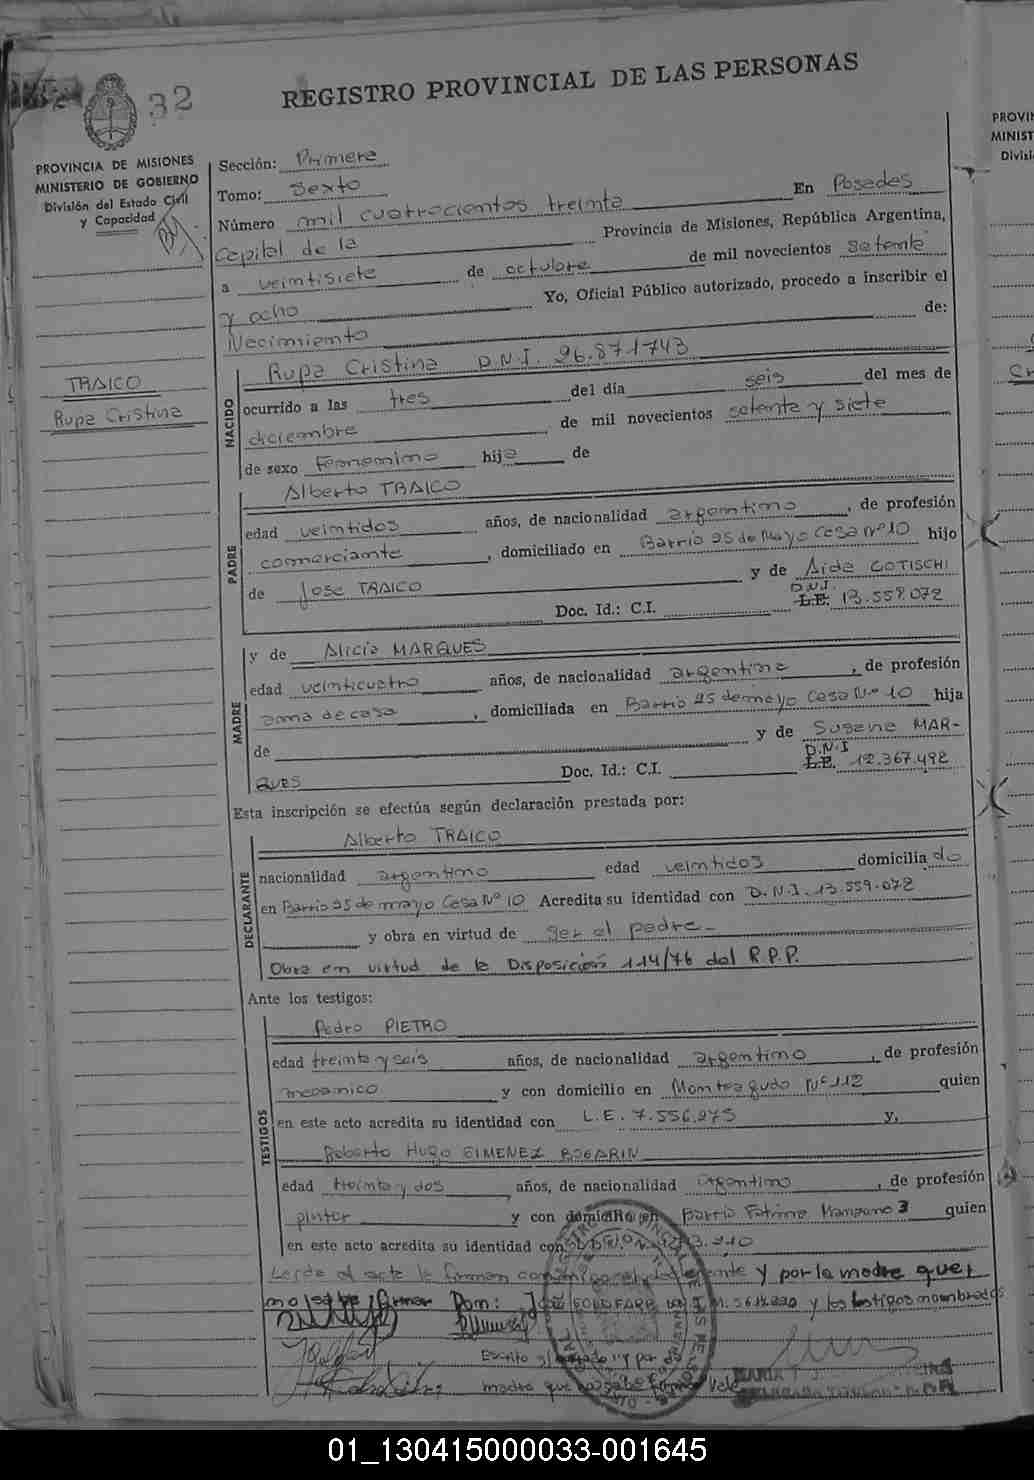 32
REGISTRO PROVINCIAL DE LAS PERSONAS
PROVINCIA DE MISIONES
MINISTERIO DE GOBIERNO
División del Estado Civil
y Capacidad
TRAICO
Rupa Cristina
Sección: Primera
Tomo: Sexto
Número mil cuatrocientos treinta En Posadas
Capital de la Provincia de Misiones, República Argentina,
a veintisiete de octubre de mil novecientos setenta
y ocho Yo, Oficial Público autorizado, procedo a inscribir el
Nacimiento de:
NACIDO
Rupa Cristina D.N.I. 26.871743
ocurrido a las tres del día seis del mes de
diciembre de mil novecientos setenta y siete
de sexo Femenino hija de
PADRE
Alberto TRAICO
edad veintidos años, de nacionalidad argentino, de profesión
comerciante, domiciliado en Barrio 25 de Mayo Casa Nº 10 hijo
de Jose TRAICO y de Aida COTISCHI
Doc. Id.: C.I. D.N.I. L.E. 13.559.072
MADRE
y de Alicia MARQUES
edad veinticuatro años, de nacionalidad argentina, de profesión
ama de casa, domiciliada en Barrio 25 de mayo Casa Nº 10 hija
de y de Susana MAR-
QUES Doc. Id.: C.I. D.N.I L.E. 12.367.492
Esta inscripción se efectúa según declaración prestada por:
DECLARANTE
Alberto TRAICO
nacionalidad argentino edad veintidos domiciliado
en Barrio 25 de mayo Casa Nº 10 Acredita su identidad con D.N.I. 13.559.072
y obra en virtud de ser el padre_
Obra en virtud de la Disposición 114/76 del R.P.P.
Ante los testigos:
TESTIGOS
Pedro PIETRO
edad treinta y seis años, de nacionalidad argentino, de profesión
mecanico y con domicilio en Monteagudo Nº 112 quien
en este acto acredita su identidad con L.E. 7.556.275 y,
Roberto Hugo GIMENEZ BOGARIN
edad treinta y dos años, de nacionalidad argentino, de profesión
pintor y con domicilio en Barrio Fatima Manzana 3 quien
en este acto acredita su identidad con
Leida el acta la firman y por la madre que
no sabe firmar y los testigos nombrados
Escrito y por
madre que no sabe firmar Vale
PROVIN
MINIST
Divisi
Cr
01_130415000033-001645